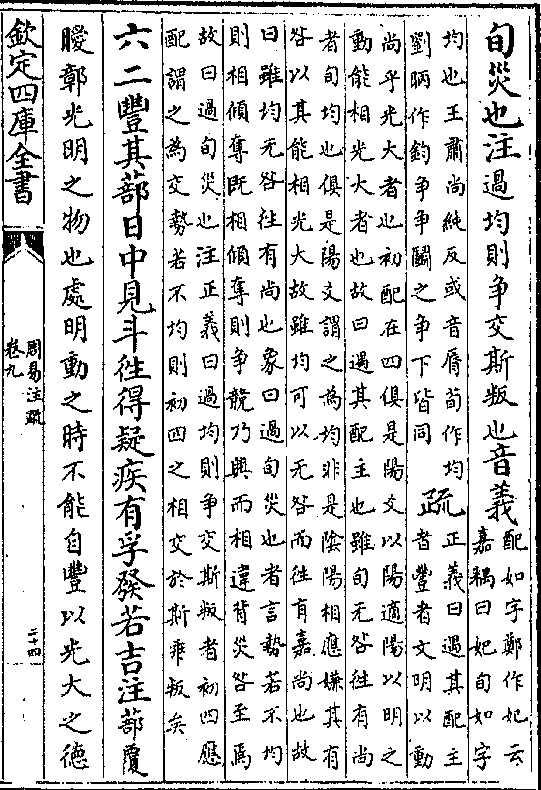 旬災也注過均則争交斯叛也音義
配如字鄭作妃云
嘉耦曰妃旬如字
均也王肅尚純反或音脣荀作均
劉昞作鈞争争鬭之争下皆同
疏
正義曰遇其配主
者豐者文明以動
尚乎光大者也初配在四俱是陽爻以陽適陽以明之
動能相光大者也故曰遇其配主也雖旬无咎往有尚
者旬均也俱是陽爻謂之為均非是陰陽相應嫌其有
咎以其能相光大故雖均可以无咎而往有嘉尚也故
曰雖均无咎往有尚也象曰過旬災也者言勢若不均
則相傾奪既相傾奪則争競乃興而相違背災咎至焉
故曰過旬災也注正義曰過均則争交斯叛者初四應
配謂之為交勢若不均則初四之相交於斯乖叛矣
六二豐其蔀日中見斗往得疑疾有孚發若吉注蔀覆
曖鄣光明之物也處明動之時不能自豐以光大之德
欽定四庫全書
周易注疏
卷九
二十四